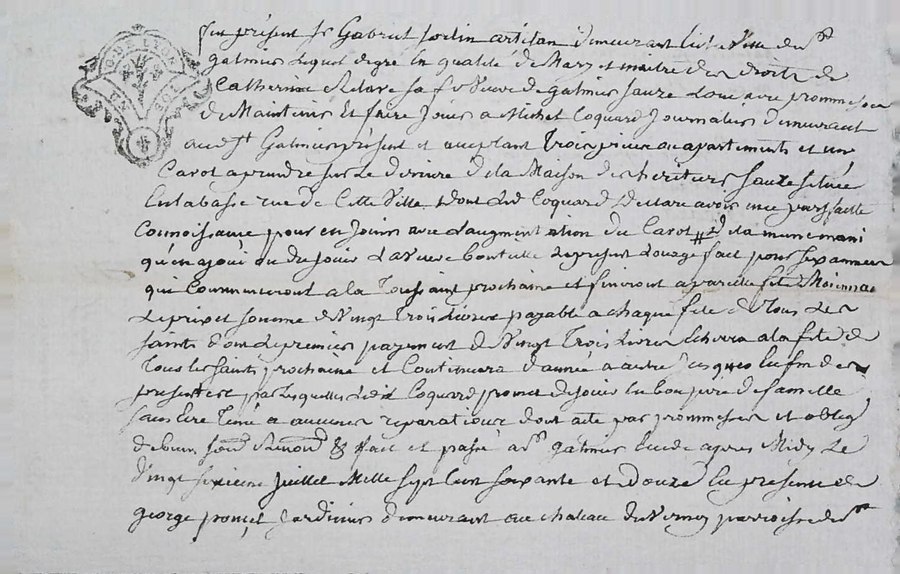 fut présent Sr Gabriel Jordin artisan demeurant en la Ville de St
galmier lequel de gré en qualité de Mary et maitre des droits de
Catherine sa fe Veuve de galmier sauze Loue avec prommesse
de Maintenir Et faire Jouir a Michel Coquard Journalier demeurant
aud St Galmier présent et acceptant Trois pieces ou apartements et un
Carot a prendre sur Le derriere de la Maison des heritiers sauze scituée
En la basse rue de Cette Ville Dont Led Coquard Declare avoir une parfaitte
Connoissance pour en Jouir avec L'augmentation du Carot de la meme maniere
qu'en a joui ou du Jouir La veuve Le present Louage fait pour six années
qui Commenceront a la Toussaint prochaine et finiront a pareille fête Moiennant
Le prix et somme de Vingt Trois Livres payable a chaque fête de Tous Les
saints dont Le premier payement de Vingt Trois Livres Echerra a la fête de
Tous les saints prochaine et Continuera d'année a autre Jusques En fin des
presentes par Lesquelles Led Coquard promet de jouir En bon pere de famille
sans Etre Tenu a aucunes reparations dont acte par prommesses et oblig
de biens & fait et passé a St galmier Etude apres Midy Le
Vingt sixieme Juillet Mille sept Cent soixante et Douze En presence de
george poncet Jardinier demeurant au chateau du Verney parroisse de St